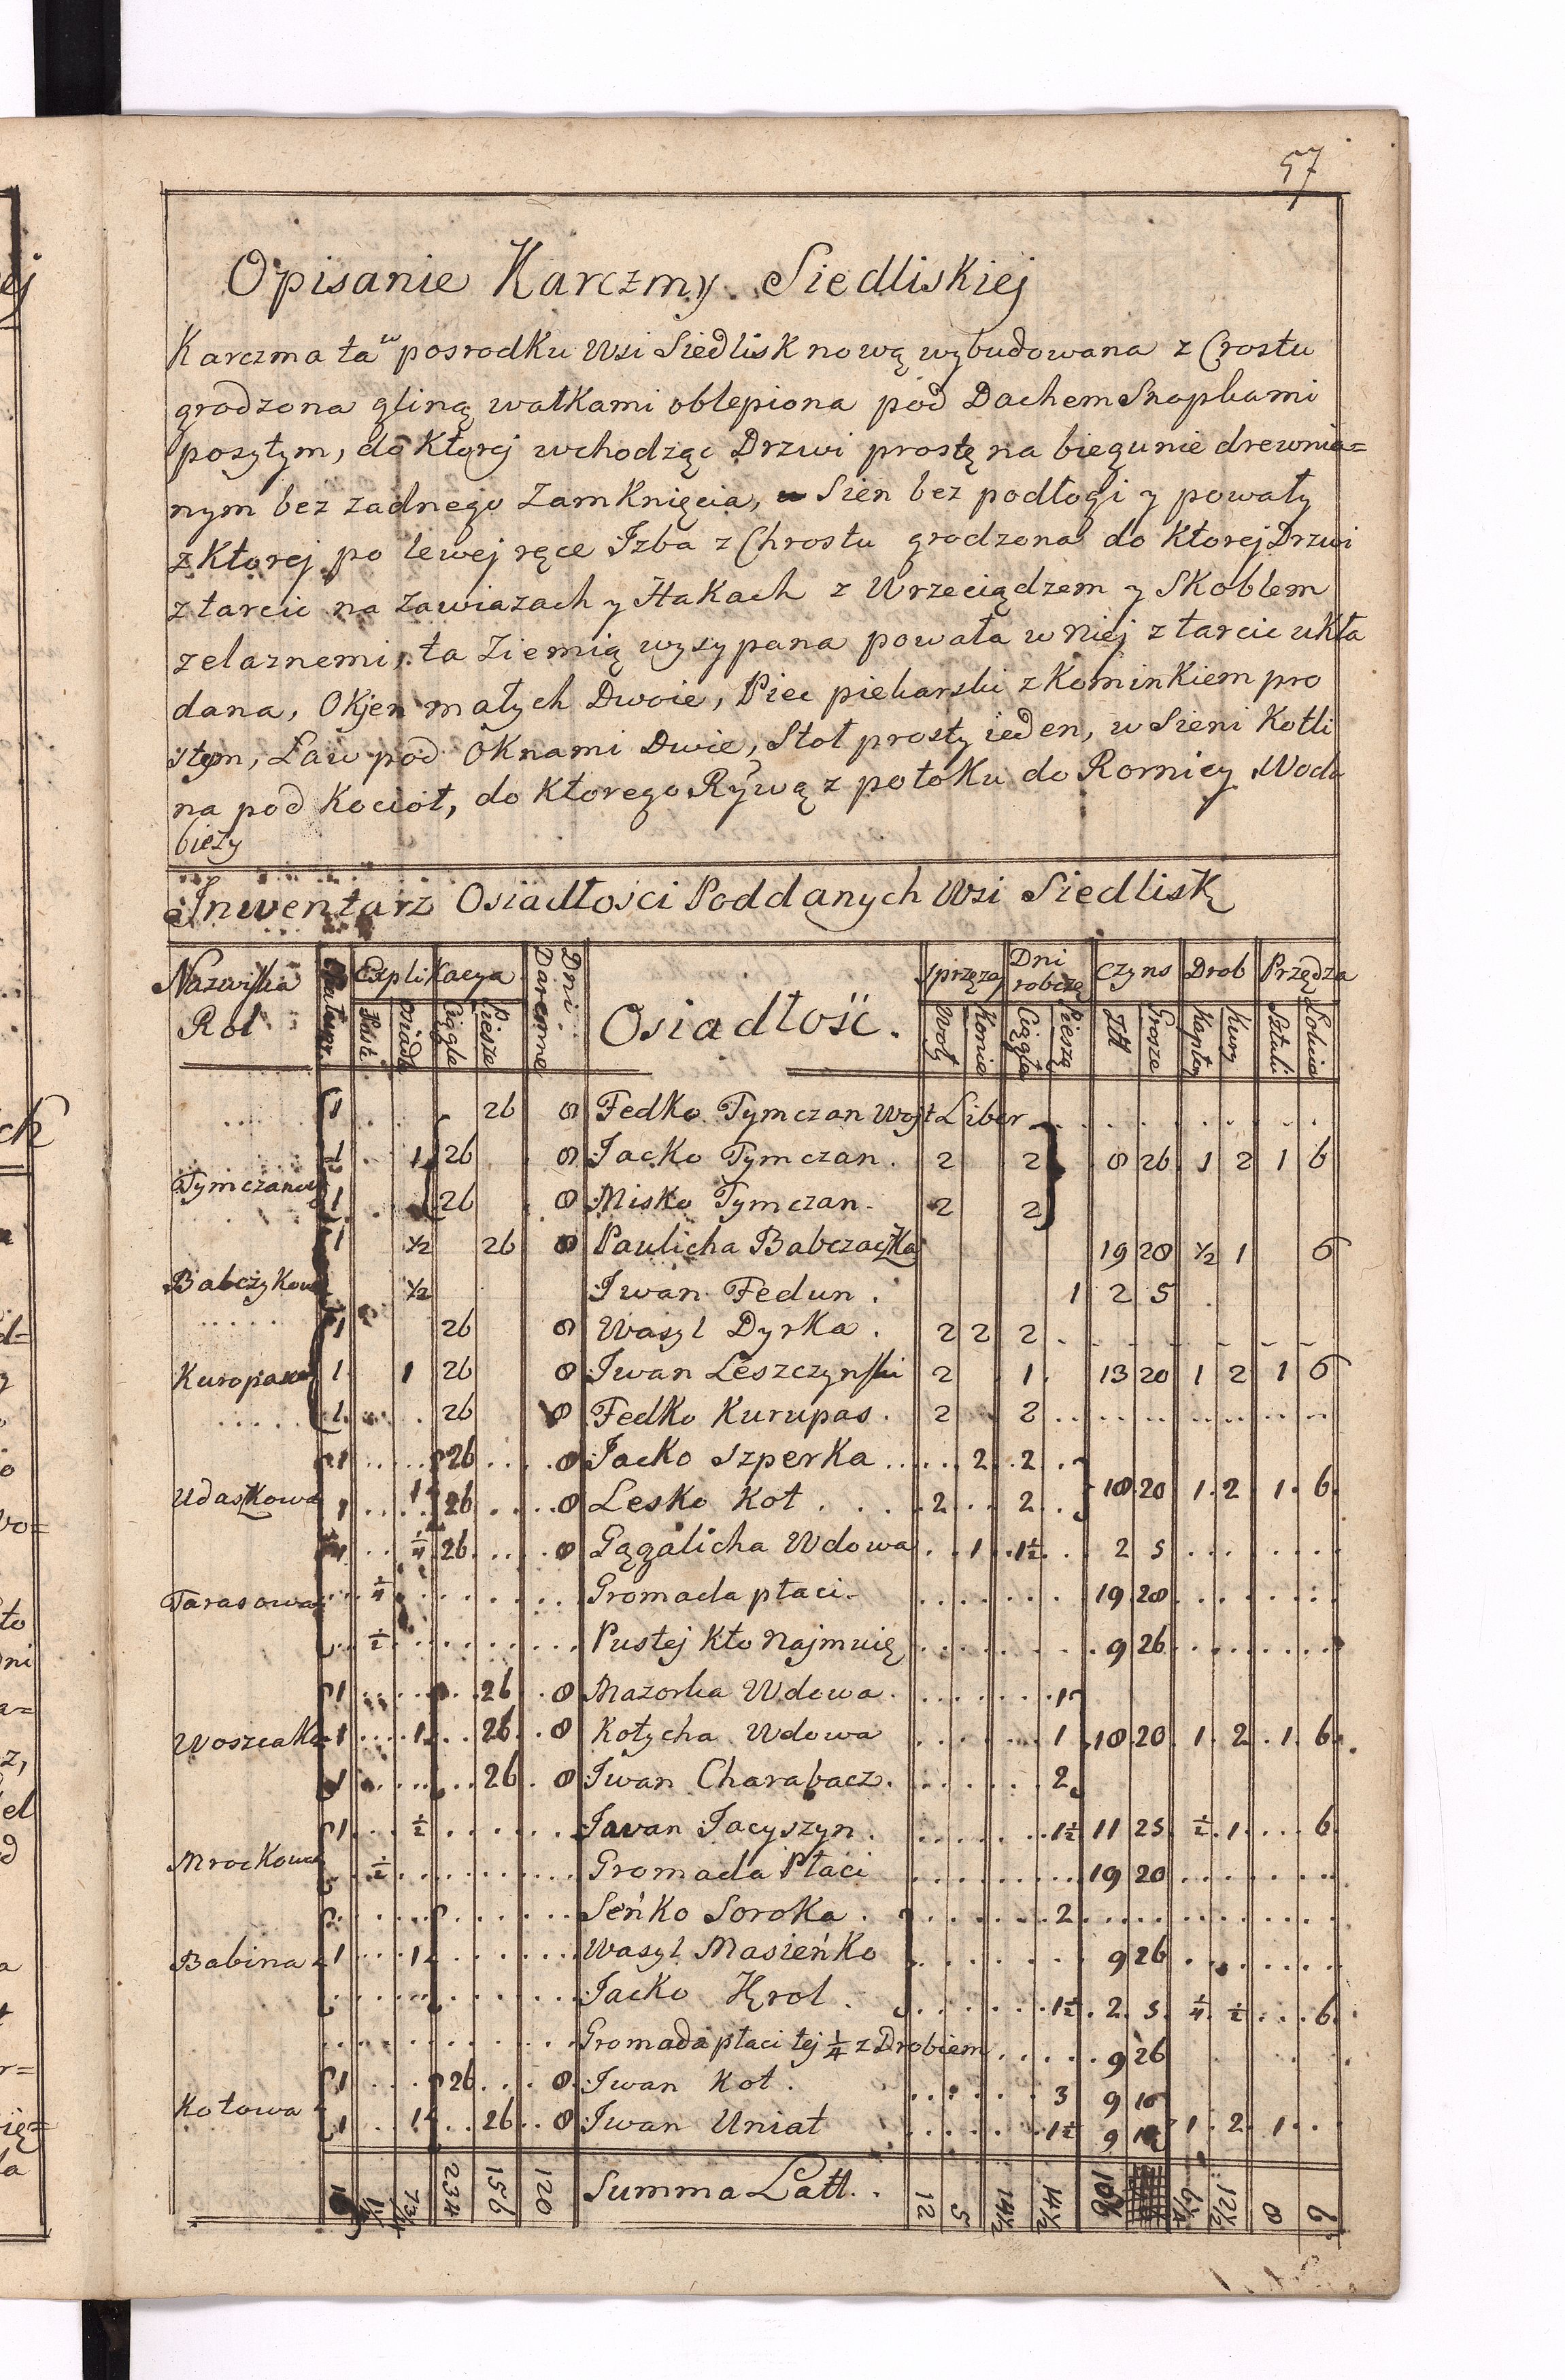 57
Opisanie Karczmy Siedliskiej
Karczma ta w posrodku Wsi Siedlisk nową wybudowana z Chrostu
grodzona gliną wałkami oblepiona pod Dachem Snopkami
poszytym, do Ktorej wchodząc Drzwi prostę na biegunie drewnia=
nym bez zadnego Zamknięcia, Sien bez podłogi y powały
z Ktorej po lewej ręce Izba z Chrostu grodzona do Ktorej Drzwi
z tarcic na Zawiazach y Hakach z Wrzeciądzem y Skoblem
zelaznemi, ta Ziemią wysypana powała w niej z tarcic ukła
dana, Okjen małych Dwoie, Piec piekarski z Kominkiem pro
stym, Ław pod Oknami Dwie, Stoł prosty ieden, w Sieni Kotli
na pod Kocioł, do Ktorego Rÿwą z potoku do Rornicy Woda
bieży
Inwentarz Osiadłości Poddanych Wsi Siedlisk
Nazwiska Rol Explikacya Dni Daremne Osiadłość. Sprzęzay Dni robczę Czyns Drob Przędza
Pusta Osiadła Ciągłe Piesze Woły Konie Ciągłe Pieszę Złł Grosze Kapłony Kury Sztuki Łokcie
1 26 8 Fedko Tymczan Woyt Liber
1 1 26 8 Jacko Tymczan. 2 2 8 26 1 2 1 6
Tymczanowa 1 26 8 Misko Tymczan 2 2
1 ½ 26 8 Paulicha Babczaczka 19 20 ½ 1 6
Babczykowa ½ Iwan Fedun. 1 2 5
1 26 8 Wasyl Dyrka. 2 2 2
Kuropasowa 1 1 26 8 Iwan Leszczynski 2 1 13 20 1 2 1 6
1 26 8 Fedko Kurupas. 2 2
1 26 8 Jacko Szperka 2 2
Udaszkowa 1 1 26 8 Lesko Kot 2 2 18 20 1 2 1 6
1 ¼ 26 8 Gągalicha Wdowa 1 1½ 2 5
Tarasowa ¼ Gromada płaci 19 20
½ Pustej Kto Najmuię 9 26
1 26 8 Mazorka Wdowa 1
Woszcakowa 1 1 26 8 Kotycha Wdowa 1 18 20 1 2 1 6
1 26 8 Iwan Charabacz. 2
1 ½ Iwan Jacyszyn 1½ 11 25 ½ 1 6
Mrockowa ½ Gromada Płaci 19 20
Seńko Soroka. 2
Babina 1 1 Wasyl Masieńko 9 26
Jacko Kęrol. 1½ 2 5 ¼ ½ 6
Gromada płaci tej ¼ z Drobiem 9 26
1 26 8 Iwan Kot. 3 9 10
Kotowa 1 1 26 8 Iwan Uniat 1½ 9 1 2 1
234 156 120 Summa Latt. 12 5 14½ 14½ 6½ 12½ 8 6